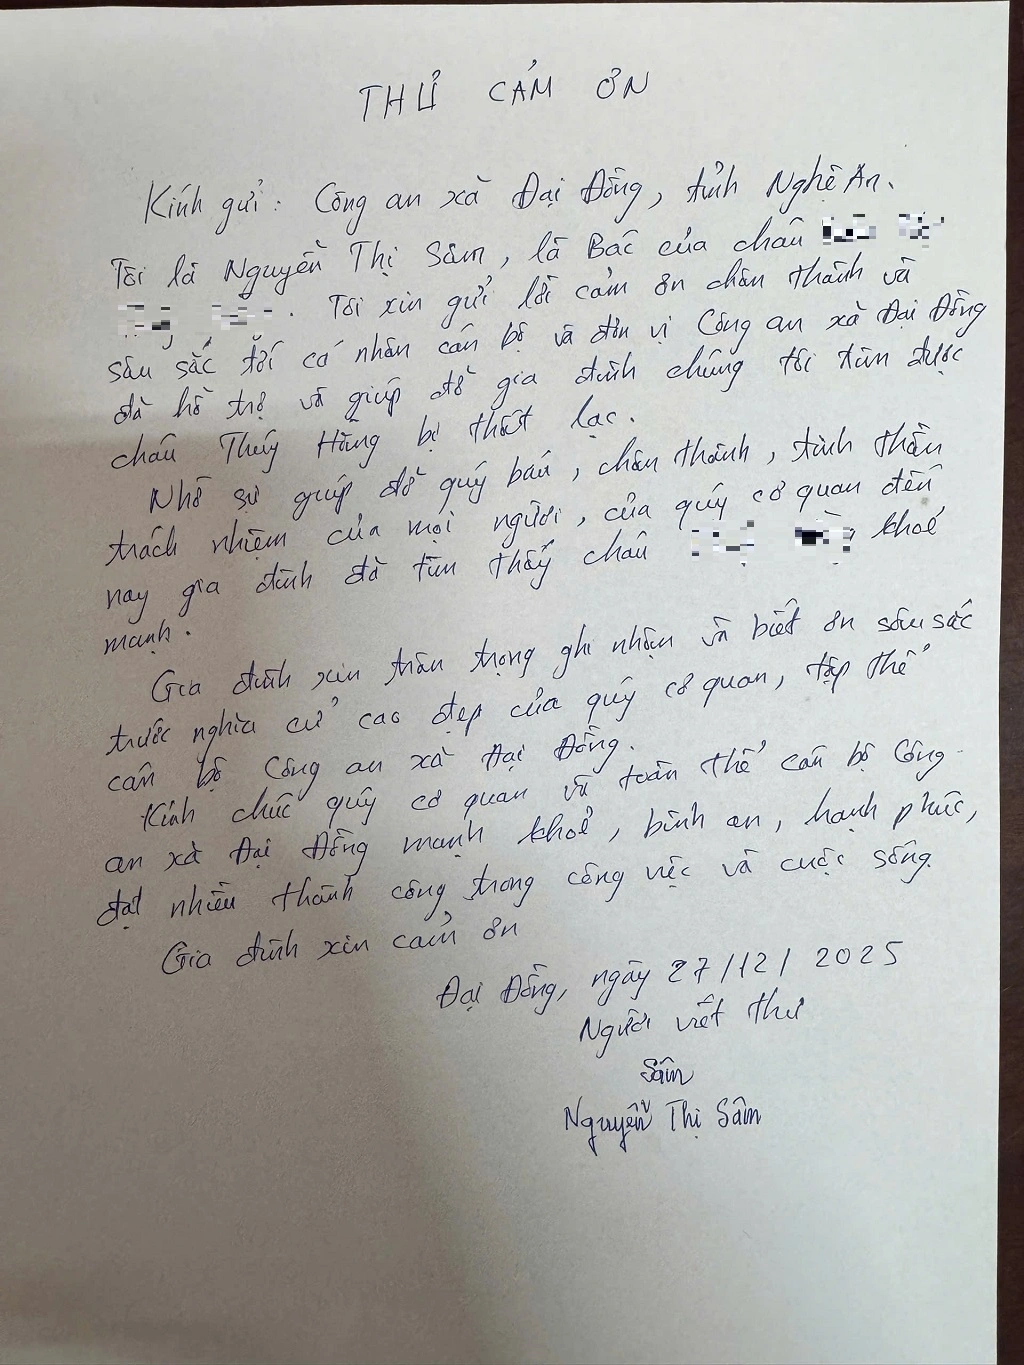 THƯ CẢM ƠN
Kính gửi: Công an xã Đại Đồng, tỉnh Nghệ An.
Tôi là Nguyễn Thị Sâm, là Bác của cháu
. Tôi xin gửi lời cảm ơn chân thành và
sâu sắc tới cá nhân cán bộ và đơn vị Công an xã Đại Đồng
đã hỗ trợ và giúp đỡ gia đình chúng tôi tìm được
cháu Thúy Hằng bị thất lạc.
Nhờ sự giúp đỡ quý báu, chân thành, tinh thần
trách nhiệm của mọi người, của quý cơ quan đến
nay gia đình đã tìm thấy cháu khoẻ
mạnh.
Gia đình xin trân trọng ghi nhận và biết ơn sâu sắc
trước nghĩa cử cao đẹp của quý cơ quan, tập thể
cán bộ Công an xã Đại Đồng.
Kính chúc quý cơ quan và toàn thể cán bộ Công
an xã Đại Đồng mạnh khoẻ, bình an, hạnh phúc,
đạt nhiều thành công trong công việc và cuộc sống.
Gia đình xin cảm ơn
Đại Đồng, ngày 27/12/2025
Người viết thư
Sâm
Nguyễn Thị Sâm